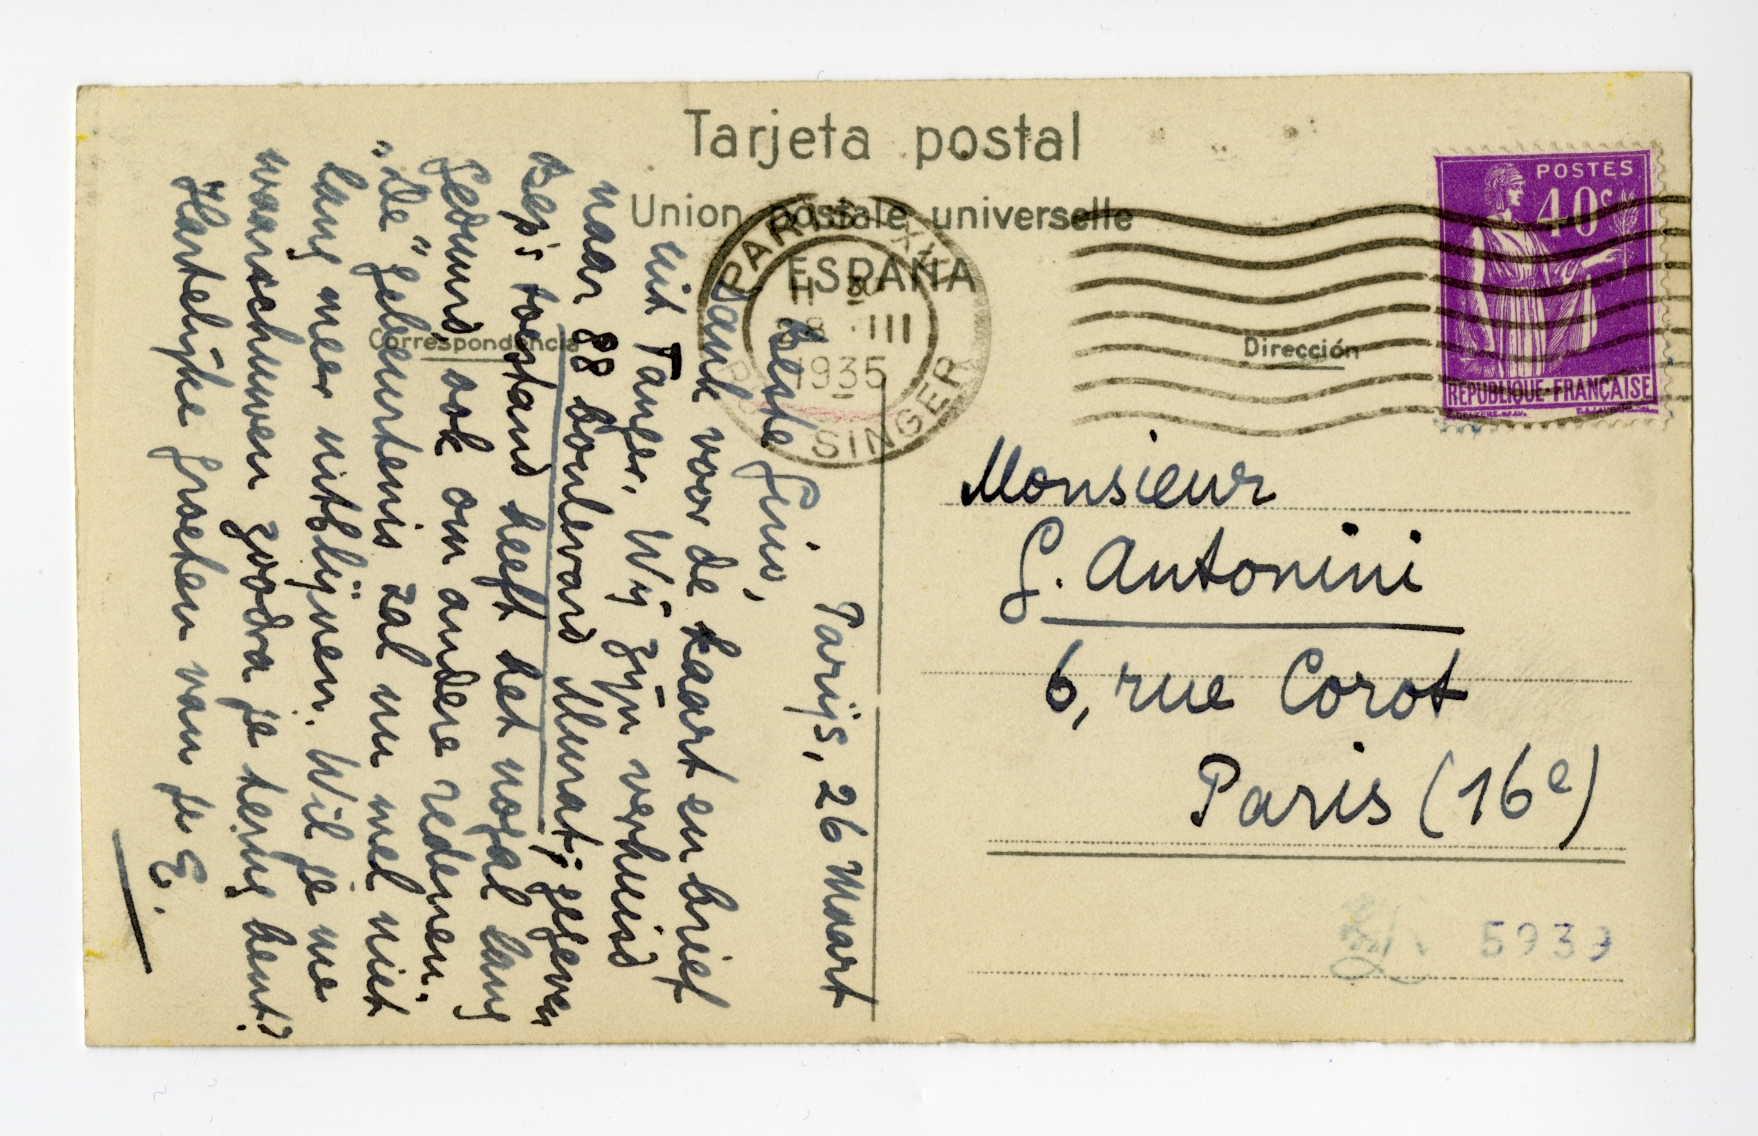 Tarjeta postal
Union postale universelle
ESPAÑA
Correspondencia
Dirección
PARIS XVI
1935
SINGER
POSTES
40c
REPUBLIQUE FRANÇAISE
Parijs, 26 Maart
Beste Gino,
Dank voor de kaart en brief
uit Tanger. Wij zijn verhuisd
naar 88 boulevard Murat; gegeven
Bep's toestand heeft het nogal lang
geduurd, ook om andere redenen.
"De" gebeurtenis zal nu wel niet
lang meer uitblijven. Wil je me
waarschuwen zoodra je terug bent?
Hartelijke groeten van je E.
Monsieur
G. Antonini
6, rue Corot
Paris (16e)
5939